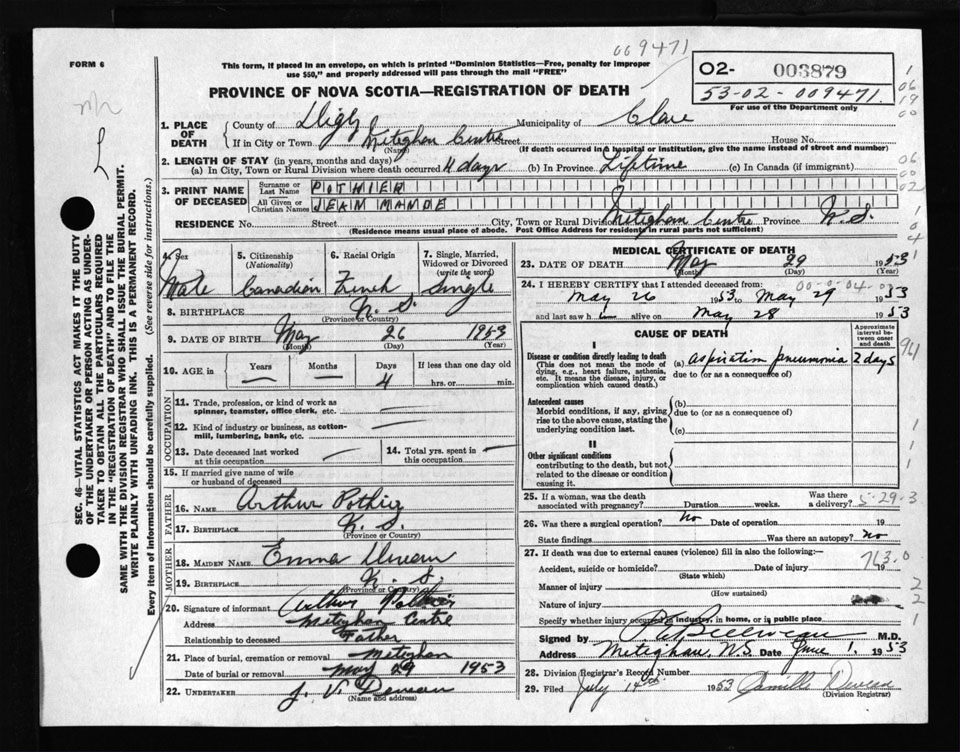 009471
FORM 6
This form, if placed in an envelope, on which is printed "Dominion Statistics—Free, penalty for improper
use $50," and properly addressed will pass through the mail "FREE"
02- 003879
53-02-009471.
For use of the Department only
PROVINCE OF NOVA SCOTIA—REGISTRATION OF DEATH
1. PLACE OF DEATH
County of Digby Municipality of Clare
If in City or Town Meteghan Centre Street House No.
(Name) (If death occurred in a hospital or institution, give the name instead of street and number)
2. LENGTH OF STAY (in years, months and days)
(a) In City, Town or Rural Division where death occurred 4 days (b) In Province Lifetime (c) In Canada (if immigrant)
3. PRINT NAME OF DECEASED
Surname or Last Name POTHIER
All Given or Christian Names JEAN MANDE
RESIDENCE No. Street City, Town or Rural Division Meteghan Centre Province N.S.
(Residence means usual place of abode. Post Office Address for residents in rural parts not sufficient)
4. Sex 5. Citizenship (Nationality) 6. Racial Origin 7. Single, Married, Widowed or Divorced (write the word)
Male Canadian French Single
8. BIRTHPLACE N.S.
(Province or Country)
9. DATE OF BIRTH May 26 1953
(Month) (Day) (Year)
10. AGE in Years Months Days If less than one day old
— — 4 hrs. or min.
OCCUPATION
11. Trade, profession, or kind of work as
spinner, teamster, office clerk, etc.
12. Kind of industry or business, as cotton-
mill, lumbering, bank, etc.
13. Date deceased last worked at this occupation
14. Total yrs. spent in this occupation
15. If married give name of wife
or husband of deceased
FATHER
16. NAME Arthur Pothier
17. BIRTHPLACE N.S.
(Province or Country)
MOTHER
18. MAIDEN NAME Emma
19. BIRTHPLACE N.S.
(Province or Country)
20. Signature of informant Arthur Pothier
Address Meteghan Centre
Relationship to deceased Father
21. Place of burial, cremation or removal Meteghan
Date of burial or removal May 29 1953
22. UNDERTAKER J. V. Deveau
(Name and address)
MEDICAL CERTIFICATE OF DEATH
23. DATE OF DEATH May 29 1953
(Month) (Day) (Year)
24. I HEREBY CERTIFY that I attended deceased from:
May 26 1953 to May 29 1953
and last saw h alive on May 28 1953
CAUSE OF DEATH
Approximate interval between onset and death
I
Disease or condition directly leading to death
(This does not mean the mode of
dying, e.g., heart failure, asthenia,
etc. It means the disease, injury, or
complication which caused death.)
(a) aspiration pneumonia 2 days
due to (or as a consequence of)
Antecedent causes
Morbid conditions, if any, giving
rise to the above cause, stating the
underlying condition last.
(b)
due to (or as a consequence of)
(c)
II
Other significant conditions
contributing to the death, but not
related to the disease or condition
causing it.
25. If a woman, was the death
associated with pregnancy? Duration weeks. Was there a delivery?
26. Was there a surgical operation? No Date of operation 19
State findings Was there an autopsy? no
27. If death was due to external causes (violence) fill in also the following:—
Accident, suicide or homicide? Date of injury 19
(State which)
763.0
Manner of injury
(How sustained)
Nature of injury
Specify whether injury occurred in industry, in home, or in public place
Signed by M.D.
Address Meteghan, N.S. Date June 1, 1953
28. Division Registrar's Record Number
29. Filed July 14th 1953 Camille Deveau
(Division Registrar)
SEC. 46—VITAL STATISTICS ACT MAKES IT THE DUTY
OF THE UNDERTAKER OR PERSON ACTING AS UNDER-
TAKER TO OBTAIN ALL THE PARTICULARS REQUIRED
IN THE "REGISTRATION OF DEATH" AND TO FILE THE
SAME WITH THE DIVISION REGISTRAR WHO SHALL ISSUE THE BURIAL PERMIT.
WRITE PLAINLY WITH UNFADING INK. THIS IS A PERMANENT RECORD.
Every item of information should be carefully supplied. (See reverse side for instructions.)